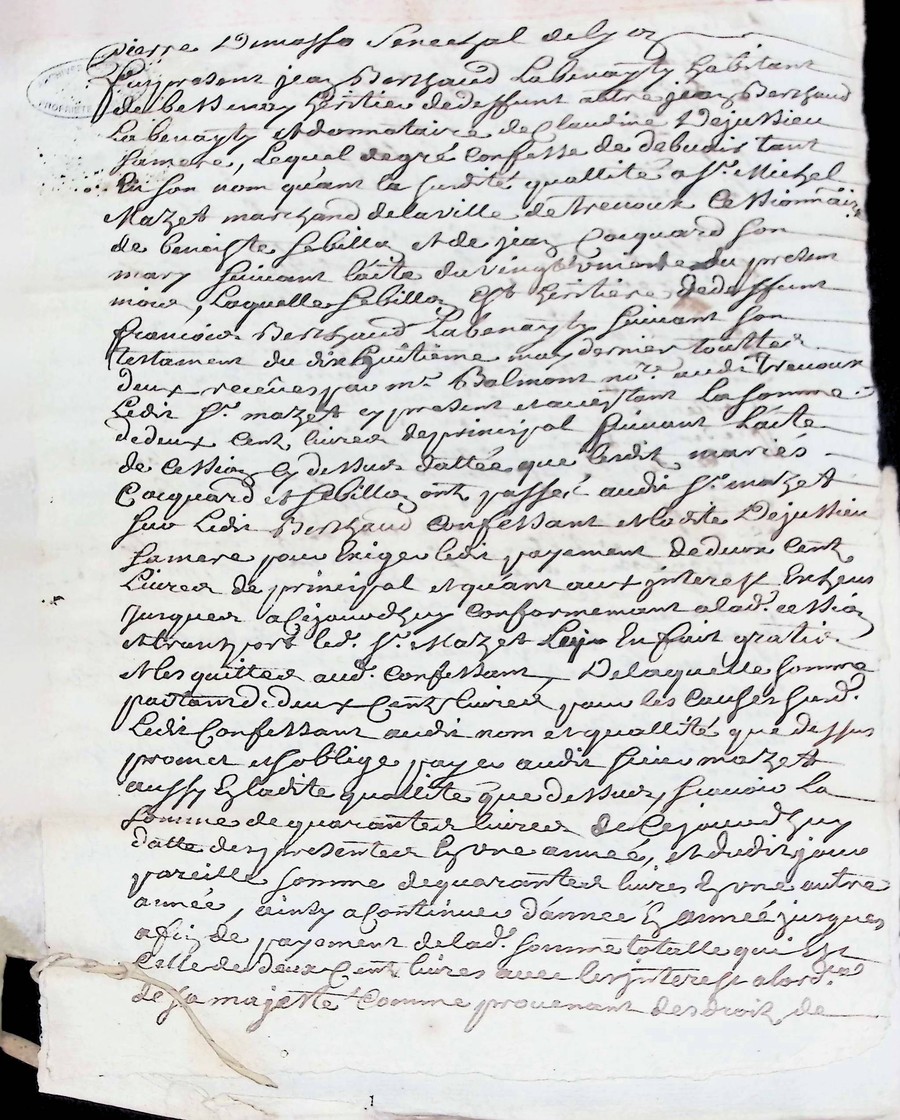 pierre Dumas Senechal de Lyon
Fut present jean Berthaud Labenayty habitant
de bessenay heritier dedeffunt autre jean Berthaud
Labenayty et donnataire de Claudine Dejussieu
Sa mere, Lequel degré Confesse de debvoir tant
En son nom quant La susdité quallité a Sr. Michel
Mazet marchand delaville de trevoux Cessionnaire
de benoiste Sebillon et de jean Cocquard son
mary suivant l'acte du vingt du present
mois, Laquelle Sebillon Est heritiere dedeffunt
francois Berthaud Labenayty suivant son
testament du dix huitieme may dernier touttes
deux receües par me. Balmont nore. audit trevoux
Ledit Sr. mazet cy present et acceptant La somme
dedeux Cent livres deprincipal suivant L'acte
de Cession cy dessus dattée que lesdit mariés
Cocquard et Sebillon ont passée audit Sr. mazet
sur Ledit Berthaud Confessant et ladite Dejussieu
Sa mere pour Exiger ledit payement dedeux Cent
Livres de principal et quant aux interest Encheus
jusques a Cejourdhuy Conformemant a lad. Cession
et transport led. Sr. Mazet Luy En fait gratis
et les quittes aud. Confessant, De laquelle somme
partant de deux Cents livres pour les Causes susd.
Ledit Confessant audit nom et quallité que dessus
promet et soblige payer audit Sieur mazet
aussy En ladite quallité que dessus, scavoir La
somme de quarantes livres de Cejourdhuy
datte des presentes En une année, et dudit jour
pareille somme dequarantes livres En une autre
année, ainsy a Continuer d'année En année jusques
afin de payement de lad. somme totalle qui Est
Celle de deux Cent livres avec les interest a lord.ce
de sa majesté Comme provenant des droit de
1